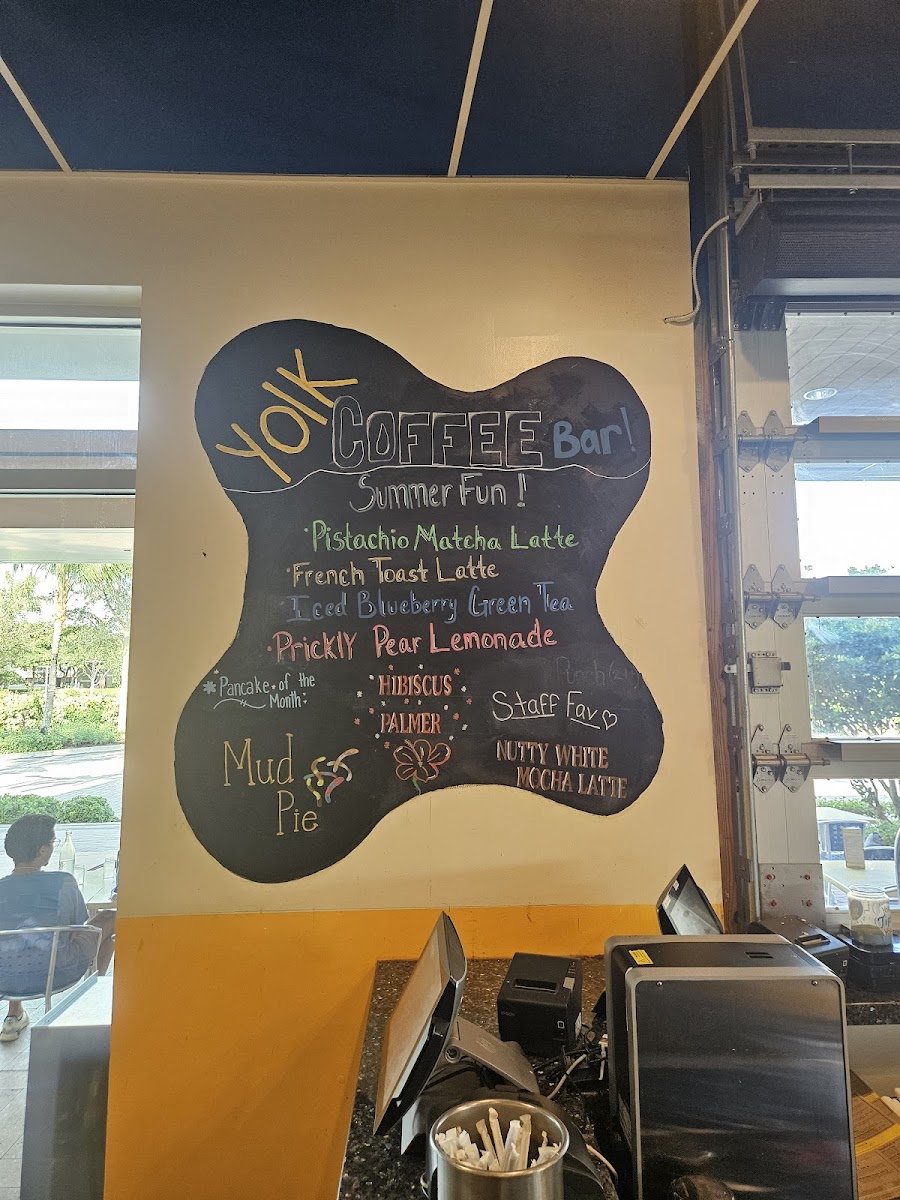 Yolk COFFEE Bar!
Summer Fun !
·Pistachio Matcha Latte
·French Toast Latte
·Iced Blueberry Green Tea
·Prickly Pear Lemonade
*Pancake of the
Month:
Mud
Pie
HIBISCUS
PALMER
Staff Fav♡
NUTTY WHITE
MOCHA LATTE